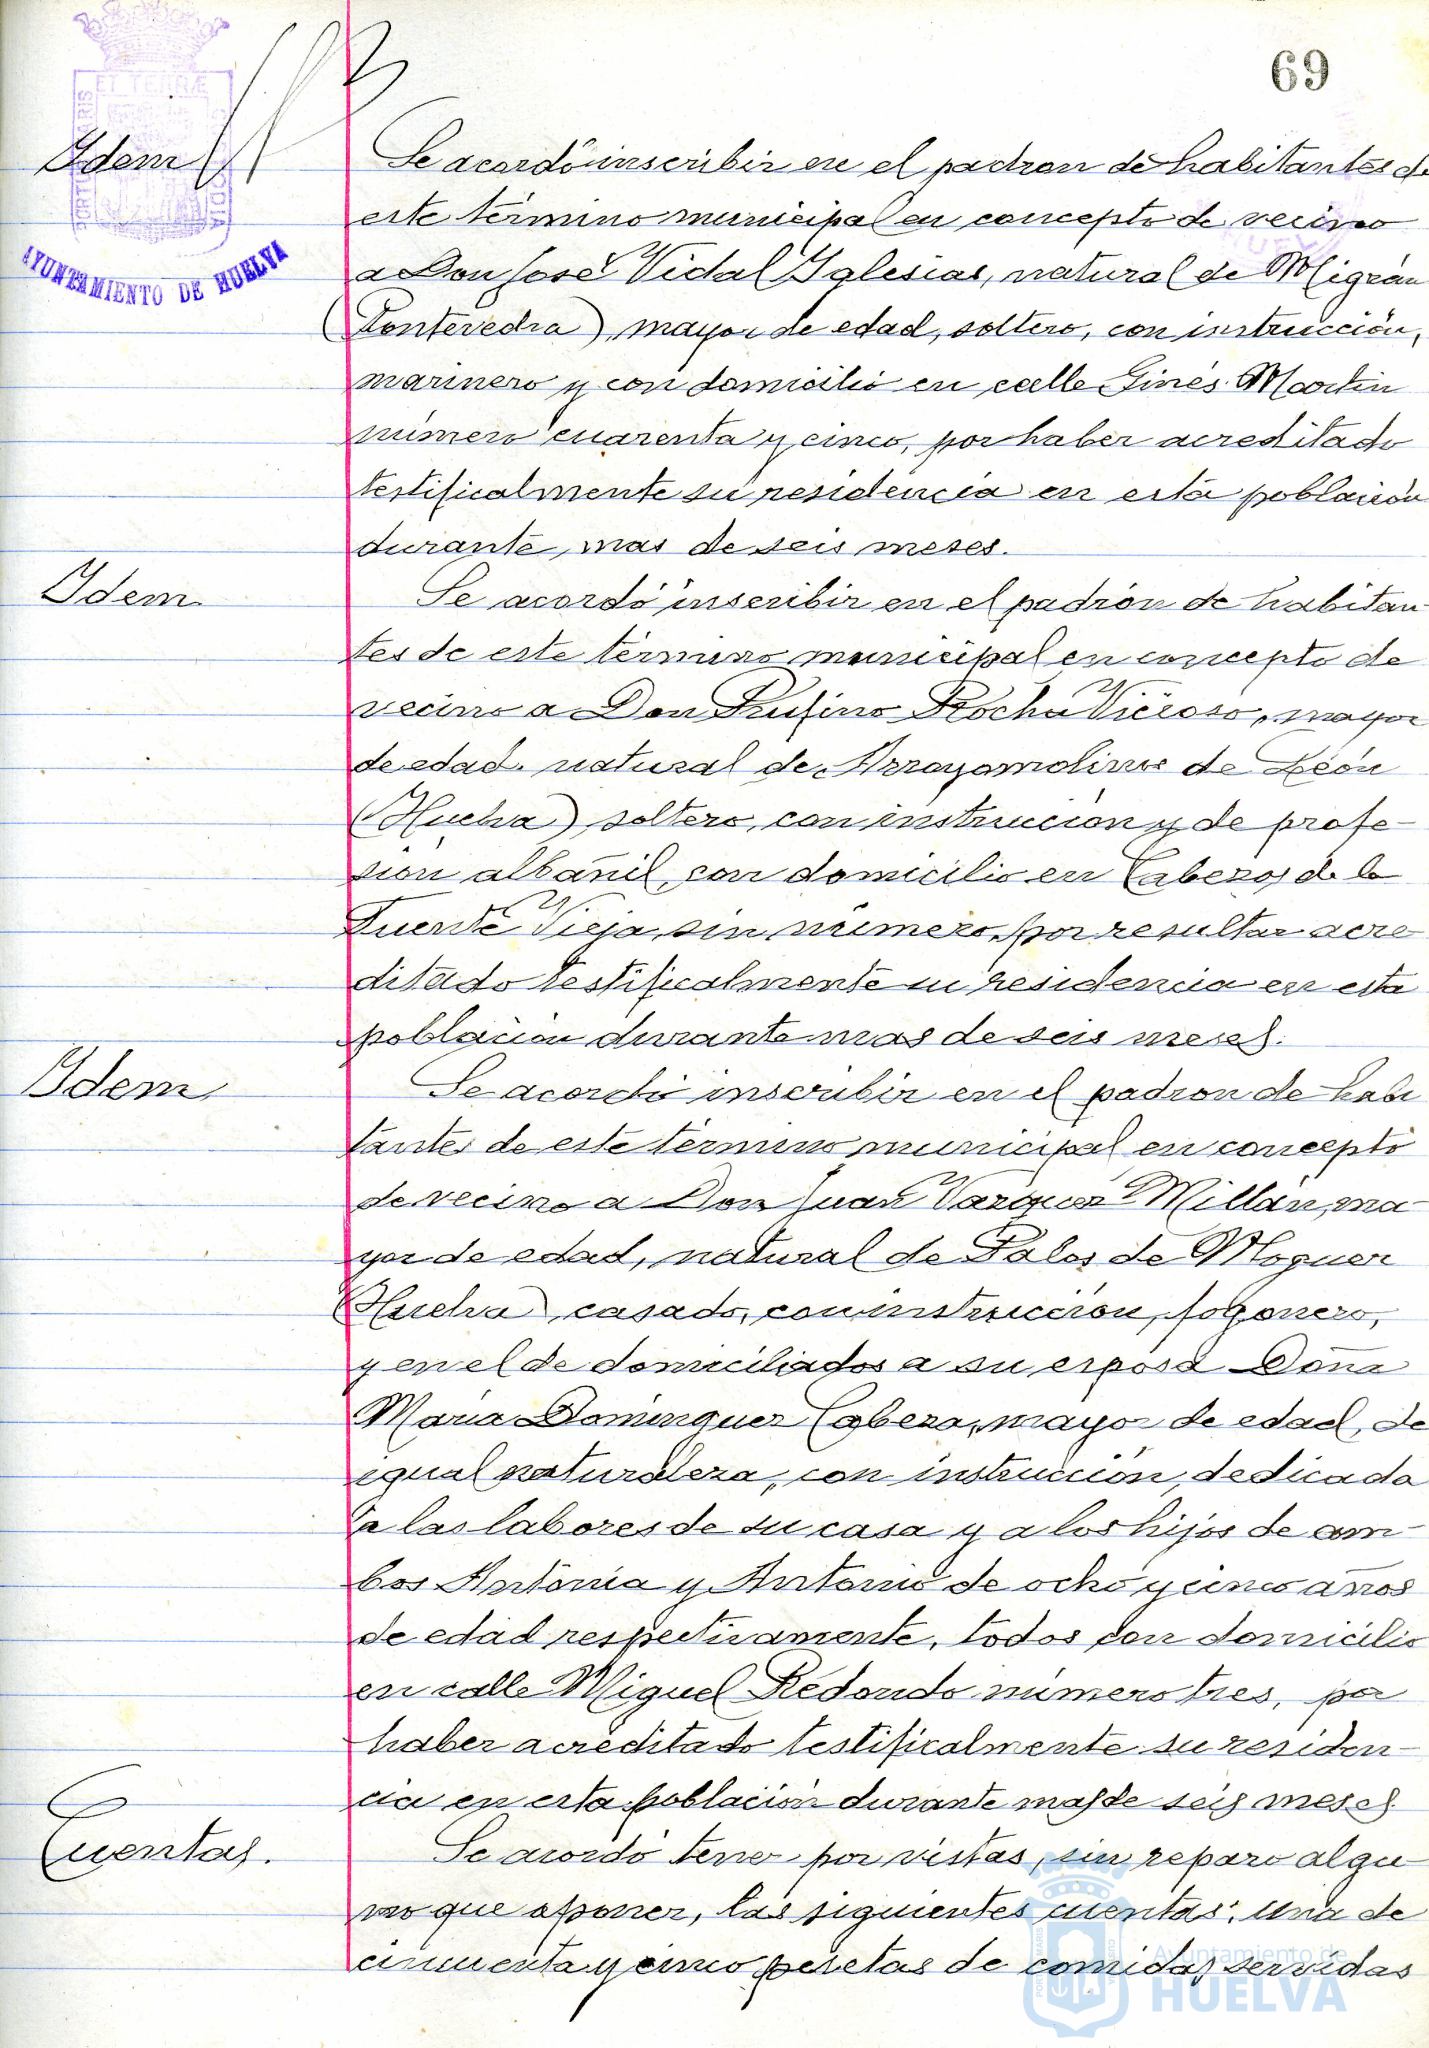 69
Idem
Se acordó inscribir en el padron de habitantes de
este término municipal en concepto de vecino
a Don José Vidal Iglesias, natural de Migran
(Pontevedra), mayor de edad, soltero, con instrucción,
marinero y con domicilio en calle Ginés Martin
número cuarenta y cinco, por haber acreditado
testificalmente su residencia en esta población
durante mas de seis meses.
Idem
Se acordó inscribir en el padrón de habitan-
tes de este término municipal en concepto de
vecino a Don Rufino Rocha Vicioso, mayor
de edad, natural de Arroyomolinos de León
(Huelva), soltero, con instrucción y de profe-
sion albañil, con domicilio en Cabezos de la
Fuente Vieja, sin número, por resultar acre
ditado testificalmente su residencia en esta
poblacion durante mas de seis meses.
Idem
Se acordó inscribir en el padron de habi
tantes de este término municipal en concepto
de vecino a Don Juan Vazquez Millán, ma-
yor de edad, natural de Palos de Moguer
(Huelva), casado, con instrucción, fogonero,
y en el de domiciliados a su esposa Doña
Maria Dominguez Cabeza, mayor de edad, de
igual naturaleza, con instrucción, dedicada
a las labores de su casa y a los hijos de am-
bos Antonia y Antonio de ocho y cinco años
de edad respectivamente, todos con domicilio
en calle Miguel Redondo número tres, por
haber acreditado testificalmente su residen-
cia en esta población durante mas de seis meses
Cuentas.
Se acordó tener por vistas, sin reparo algu
no que oponer, las siguientes cuentas: Una de
cincuenta y cinco pesetas de comidas servidas
AYUNTAMIENTO DE HUELVA
ET TERRÆ
Ayuntamiento de
HUELVA